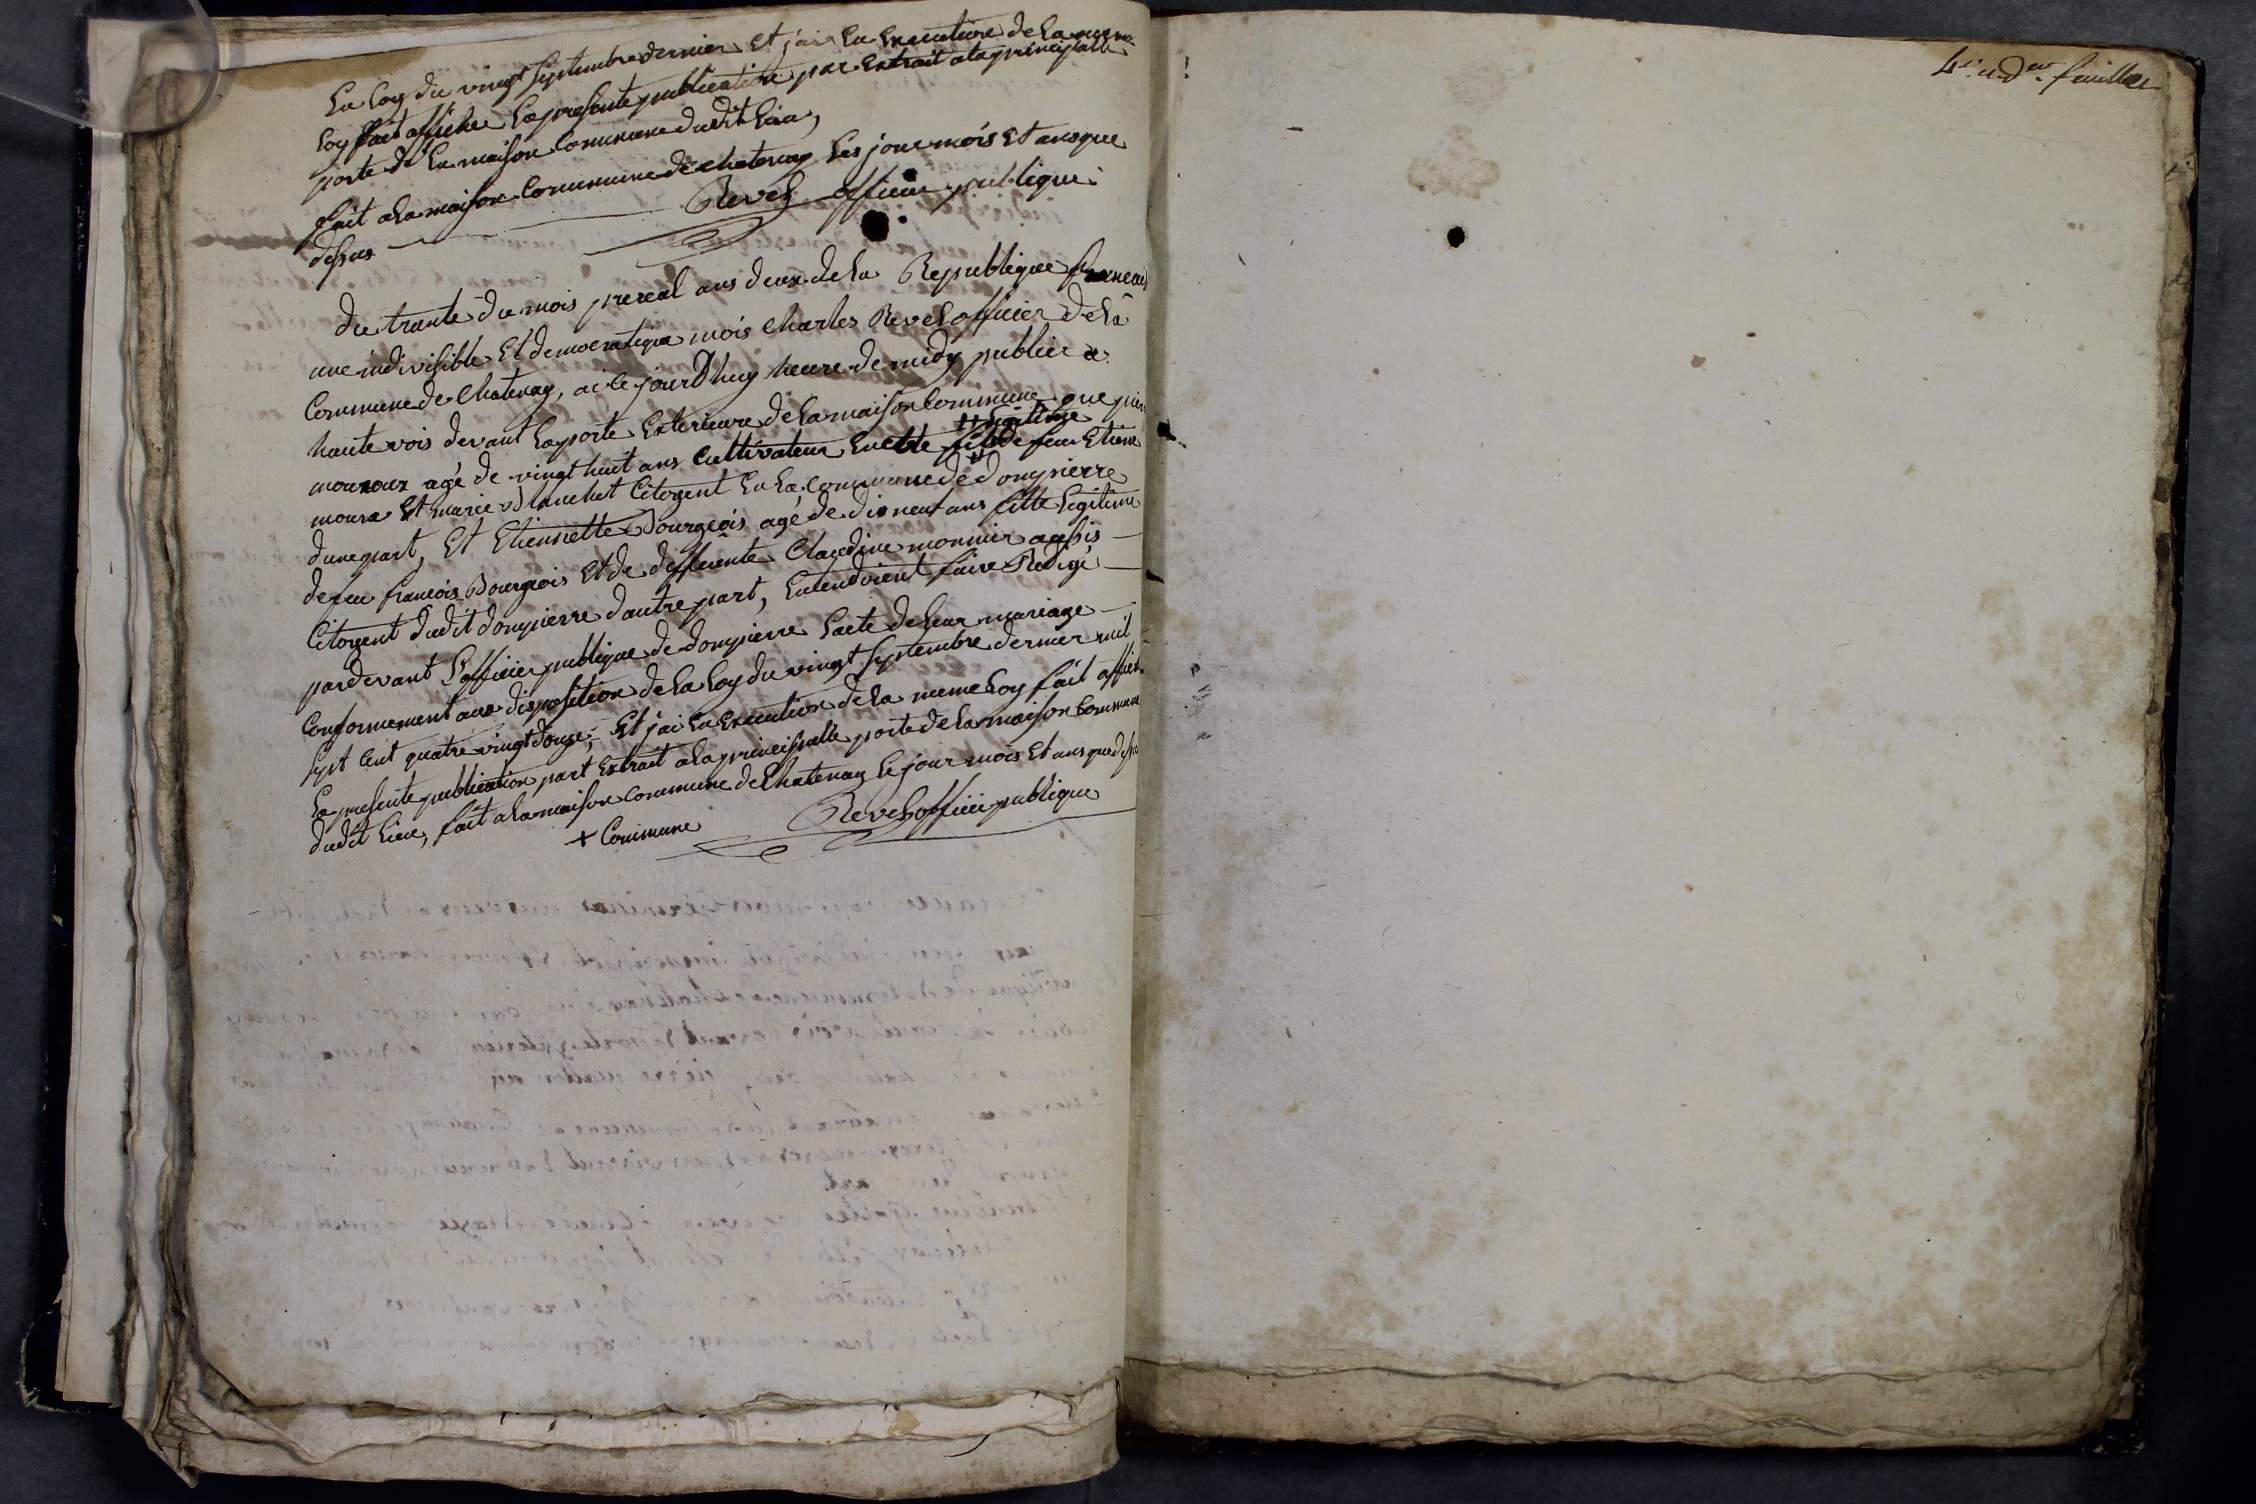 La loy du vingt septembre dernier Et jai En Execution de La meme
loy fait afficher La presente publication par Extrait ala principalle
porte de La maison Commune dudit Lieu,
fait ala maison Commune de chatenay Les jour mois Et ans que
dessus Revel officier publique
du trante du mois prereal ans deux de La Republique
une indivisible Et democratique mois Charles Revel officier de La
Commune de Chatenay, ai ce jourdhuy heure de midy publier a
haute vois devant La porte Exterieure de La maison Commune que pier
Legitime
mouroux agé de vingt huit ans Cultivateur fils de feu Etiene
moura Et marie Blanchet Citoyent En La Commune de dompierre
dune part, Et Etiennette Bourgeois agé de dis neuf ans fille Legitime
de feu francois Bourgeois Et de deffuente Claudine monnier aussis
Citoyent dudit dompierre dautre part, Entendoient faire Redigé
pardevant Lofficier publique de dompierre Lacte de Leur mariage
Conformement aux disposition de La Loy du vingt septembre dernier mil
sept Cent quatre vingt douze, Et jai En Execution de La meme Loy fait affiche
La presente publication part Extrait ala principalle porte de La maison Commune
dudit Lieu, fait ala maison commune de Chatenay Le jour mois Et ans que dessu
+ Commune Revel officié publique
4e. et der. feuillet